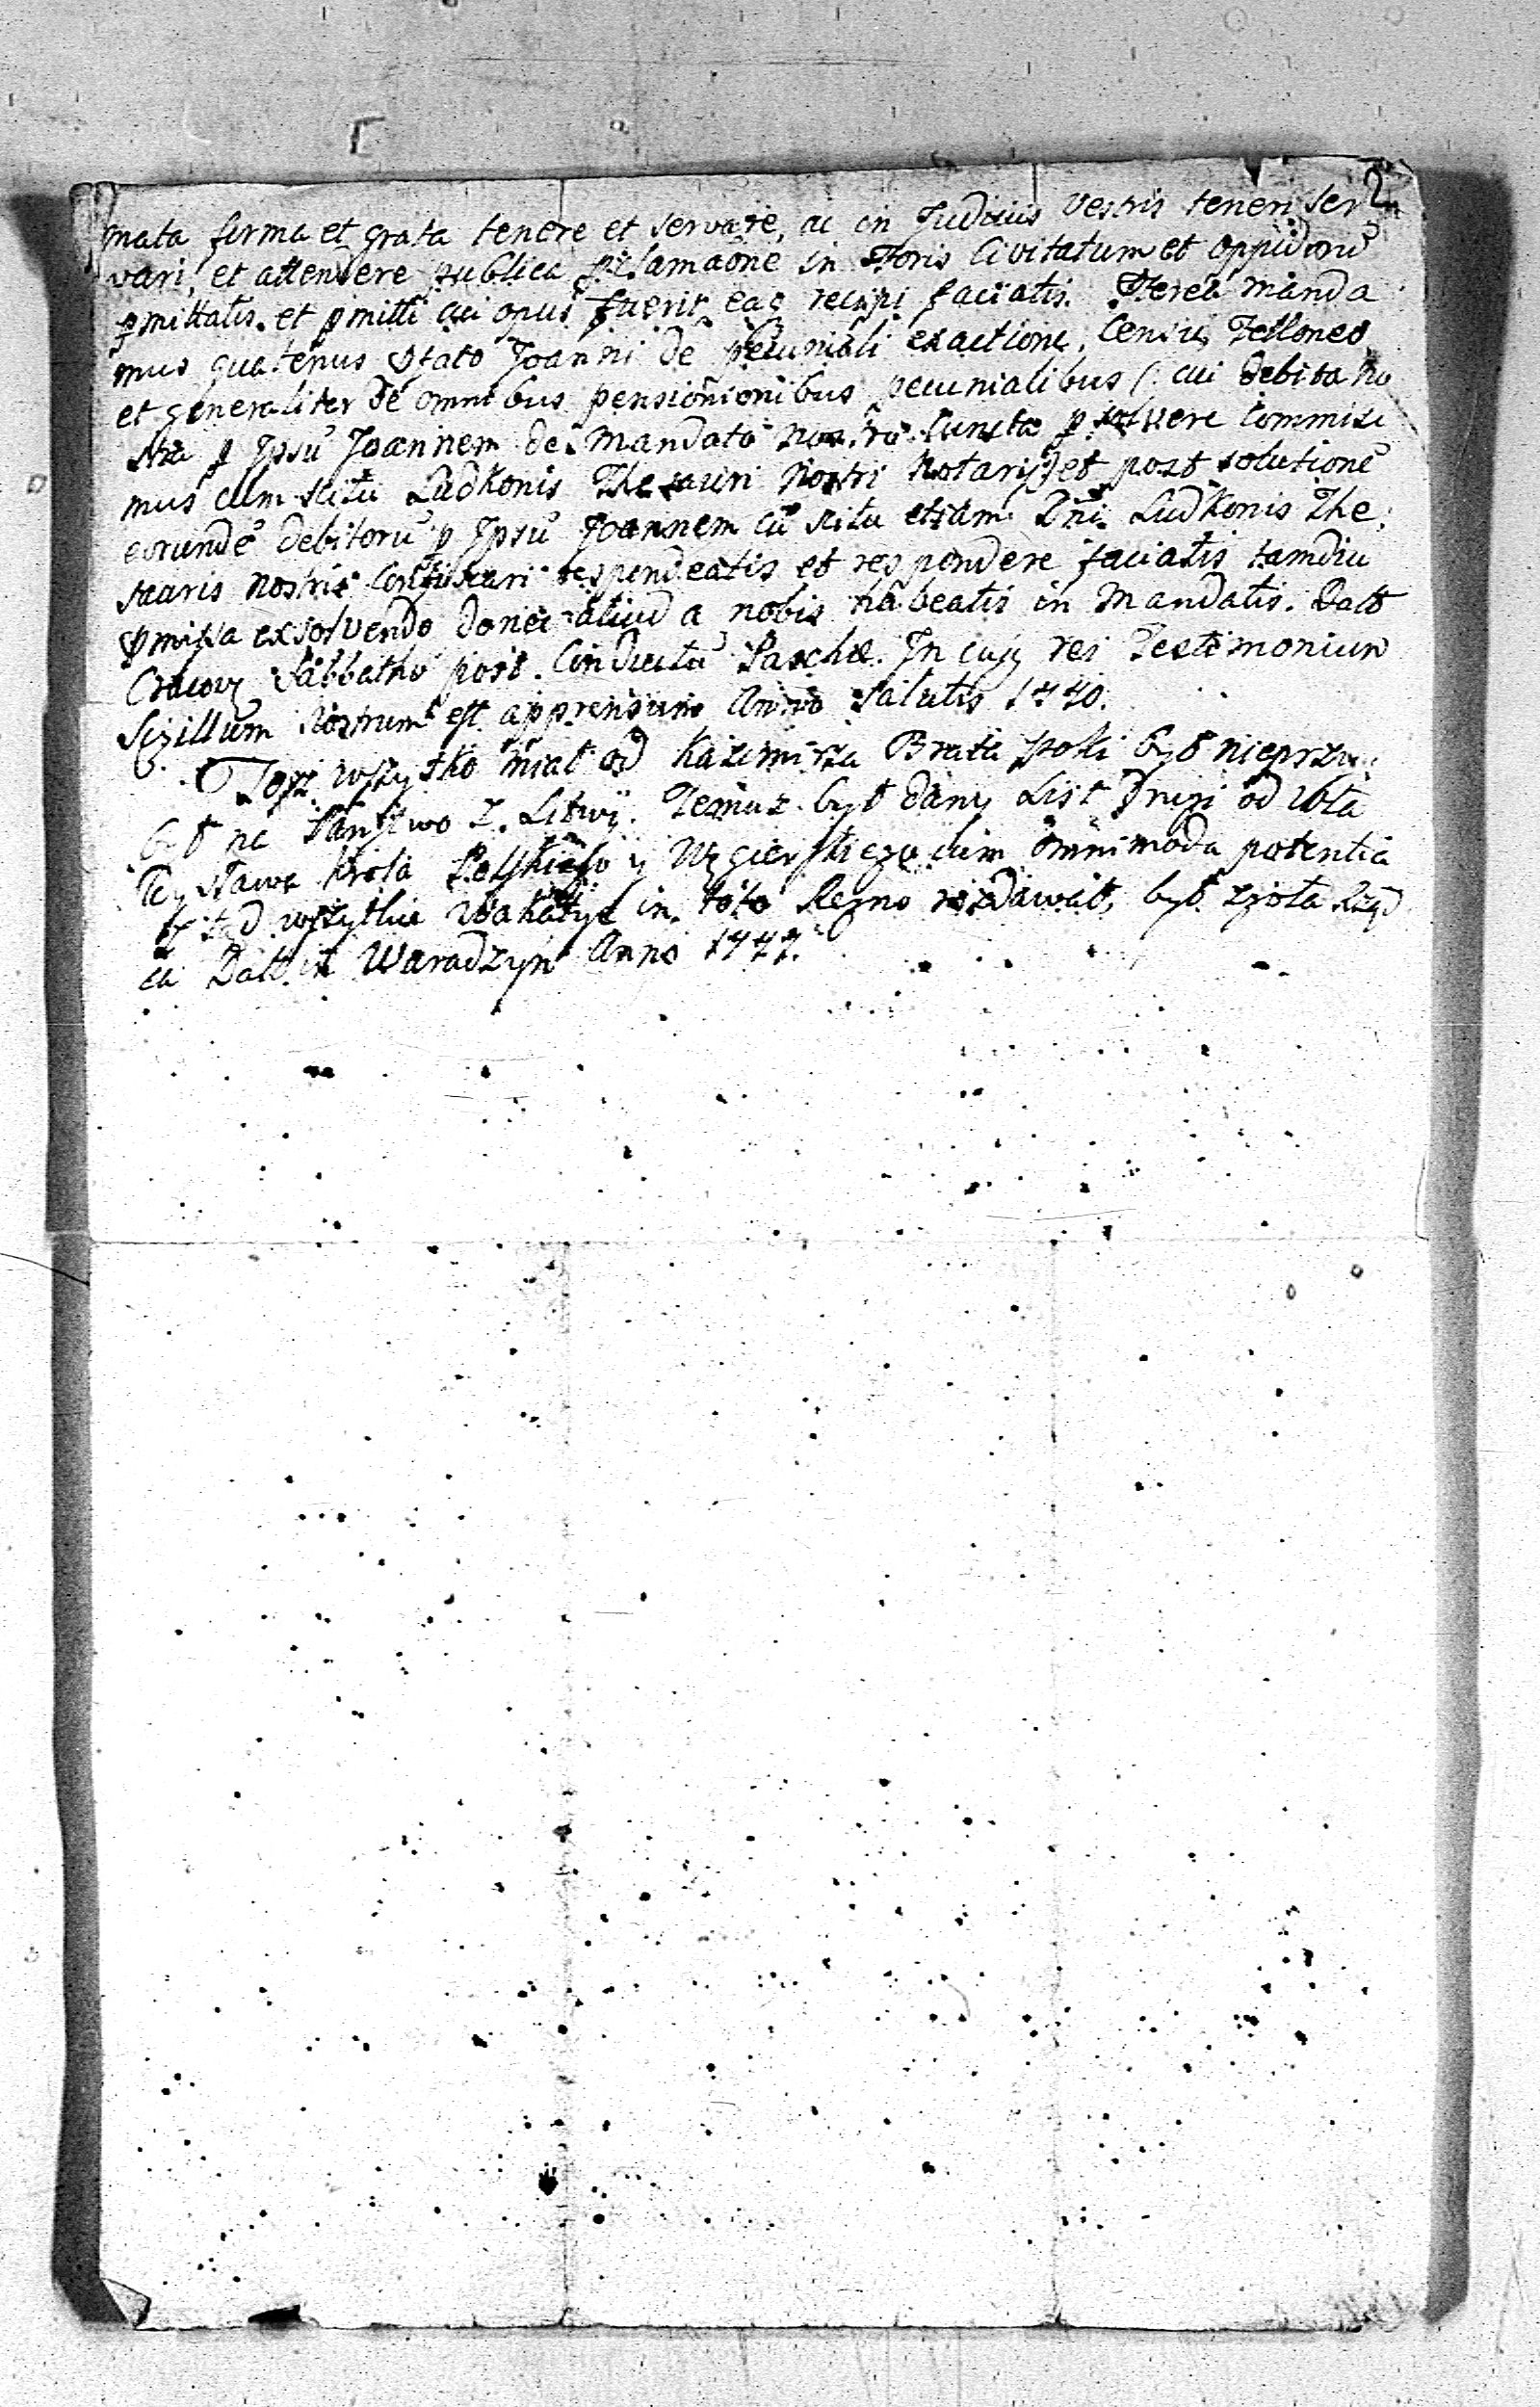 2
mata firma et grata tenere et servare, ac in Judiciis Vestris teneri ser
vari, et attendere publica in Foris Civitatum et Oppidorū
pmittatis. et pmitti cui opus fuerit eas recipi faciatis. manda
mus quatenus Joanni de pecuniali exactione, Censu, Telloneo
et generaliter de omnibus pecunialibus (: cui debita no
stra p Ipsū Joannem de Mandato nostro cuncta psolvere commisi
mus cum scitu Ludkonis Thesauri Nostri Notarij :) et post solutionē
eorundē debitorū p Ipsū Joannem cū scitu etiam Dni Ludkonis The
sauris nostris respondeatis et respondere faciatis tamdiu
pmissa exsolvendo donec aliud a nobis habeatis in Mandatis. Datt
Cracov Sabbatho post Conductū Paschæ. In cujus rei Testimonium
Sigillum Nostrum est appensum Anno Salutis 1440.
Toż wszytko miał od Kazimirza Brata poki był nieprzy
był na Państwo z Litwy. Temuz był dany List Drugi od Wła
dysława Krola Polskiego y Węgierskiego cum omnimoda potentia
wszytkie Wakacye in toto Regno rozdawał, był zgoła Rząd
ca Datt. in Waradzyn Anno 1442.